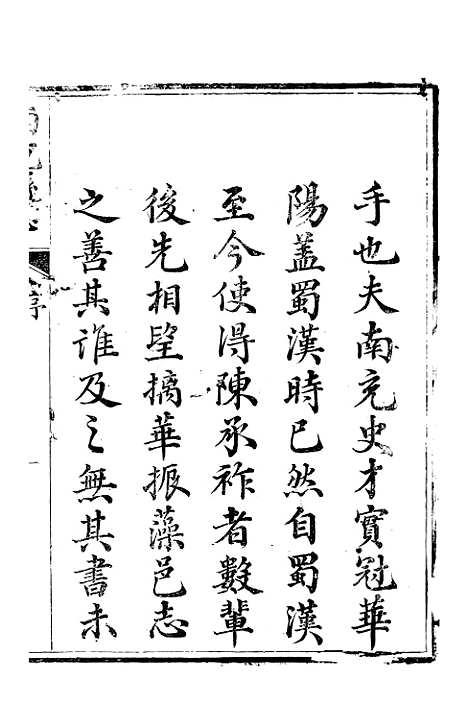 手也夫南充史才實冠華
陽蓋蜀漢時已然自蜀漢
至今使得陳承祚者數輩
後先相望摛華振藻邑志
之善其誰及之無其書未
序